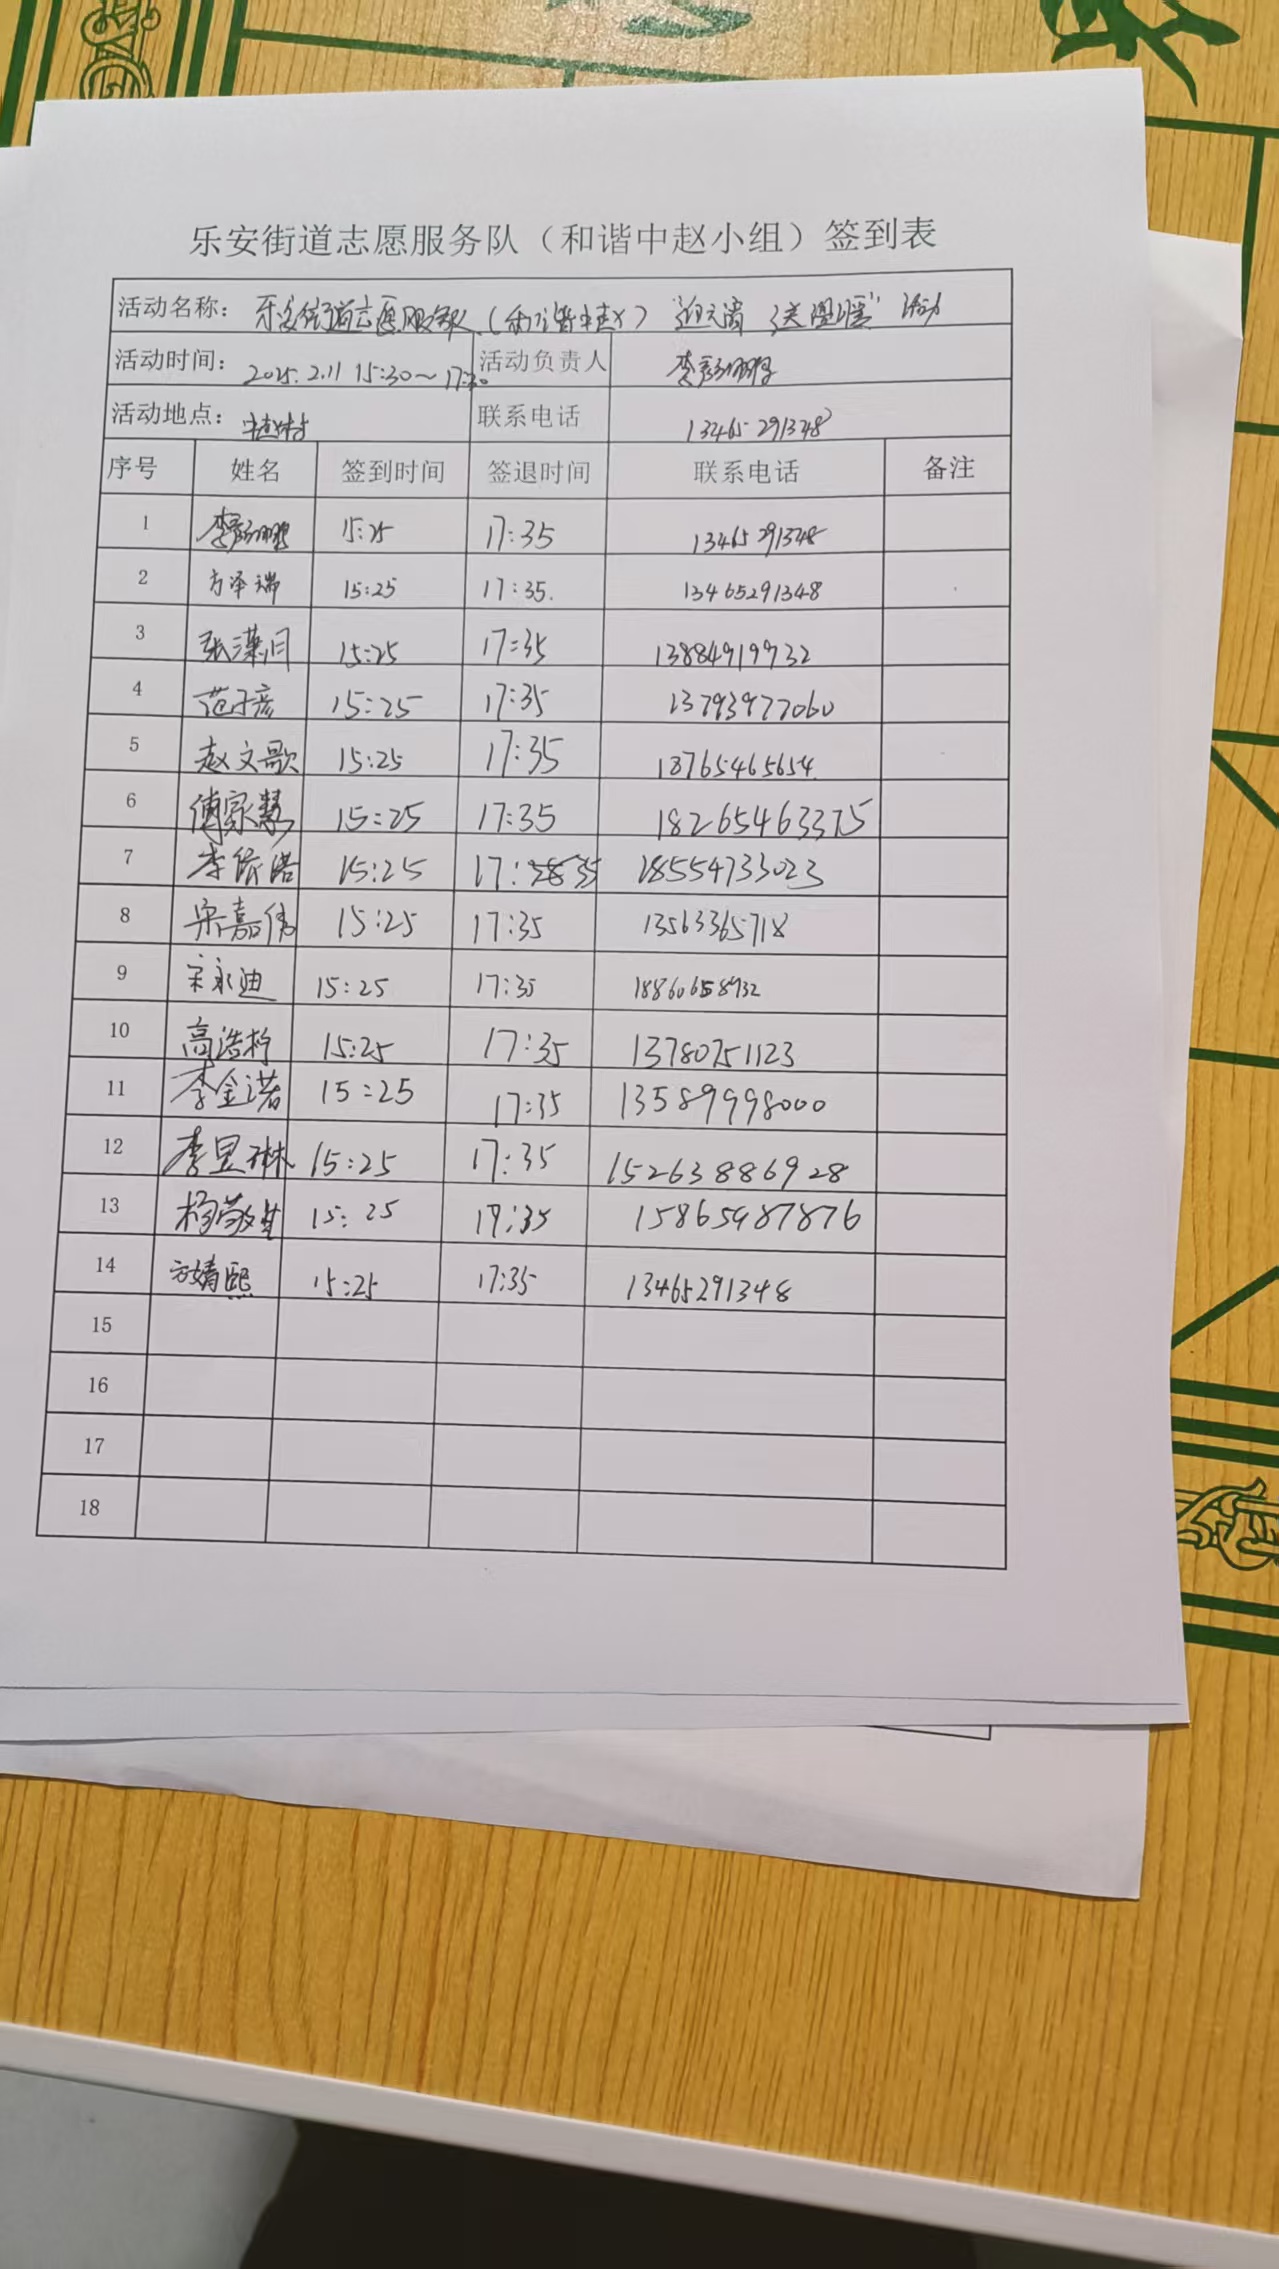 乐安街道志愿服务队（和谐中赵小组）签到表
活动名称： 乐安街道志愿服务队（和谐中赵）“迎元宵 送温暖”活动
活动时间： 2025.2.11 15:30～17:30 活动负责人 李
活动地点： 中赵村 联系电话 13465291348
序号 姓名 签到时间 签退时间 联系电话 备注
1 李 15:25 17:35 13465291348
2 方泽瑞 15:25 17:35. 13465291348
3 张潇月 15:25 17:35 13884919932
4 范子彦 15:25 17:35 13793977060
5 赵文歌 15:25 17:35 18765465654
6 傅家慧 15:25 17:35 18265463375
7 李依诺 15:25 17:35 18554733023
8 宋嘉伟 15:25 17:35 13563365718
9 宋永迪 15:25 17:35 18860658932
10 高浩柠 15:25 17:35 13780751123
11 李金诺 15:25 17:35 13589998000
12 李昱琳 15:25 17:35 15263886928
13 杨敬 15:25 17:35 15865987876
14 方婧熙 15:25 17:35 13465291348
15
16
17
18